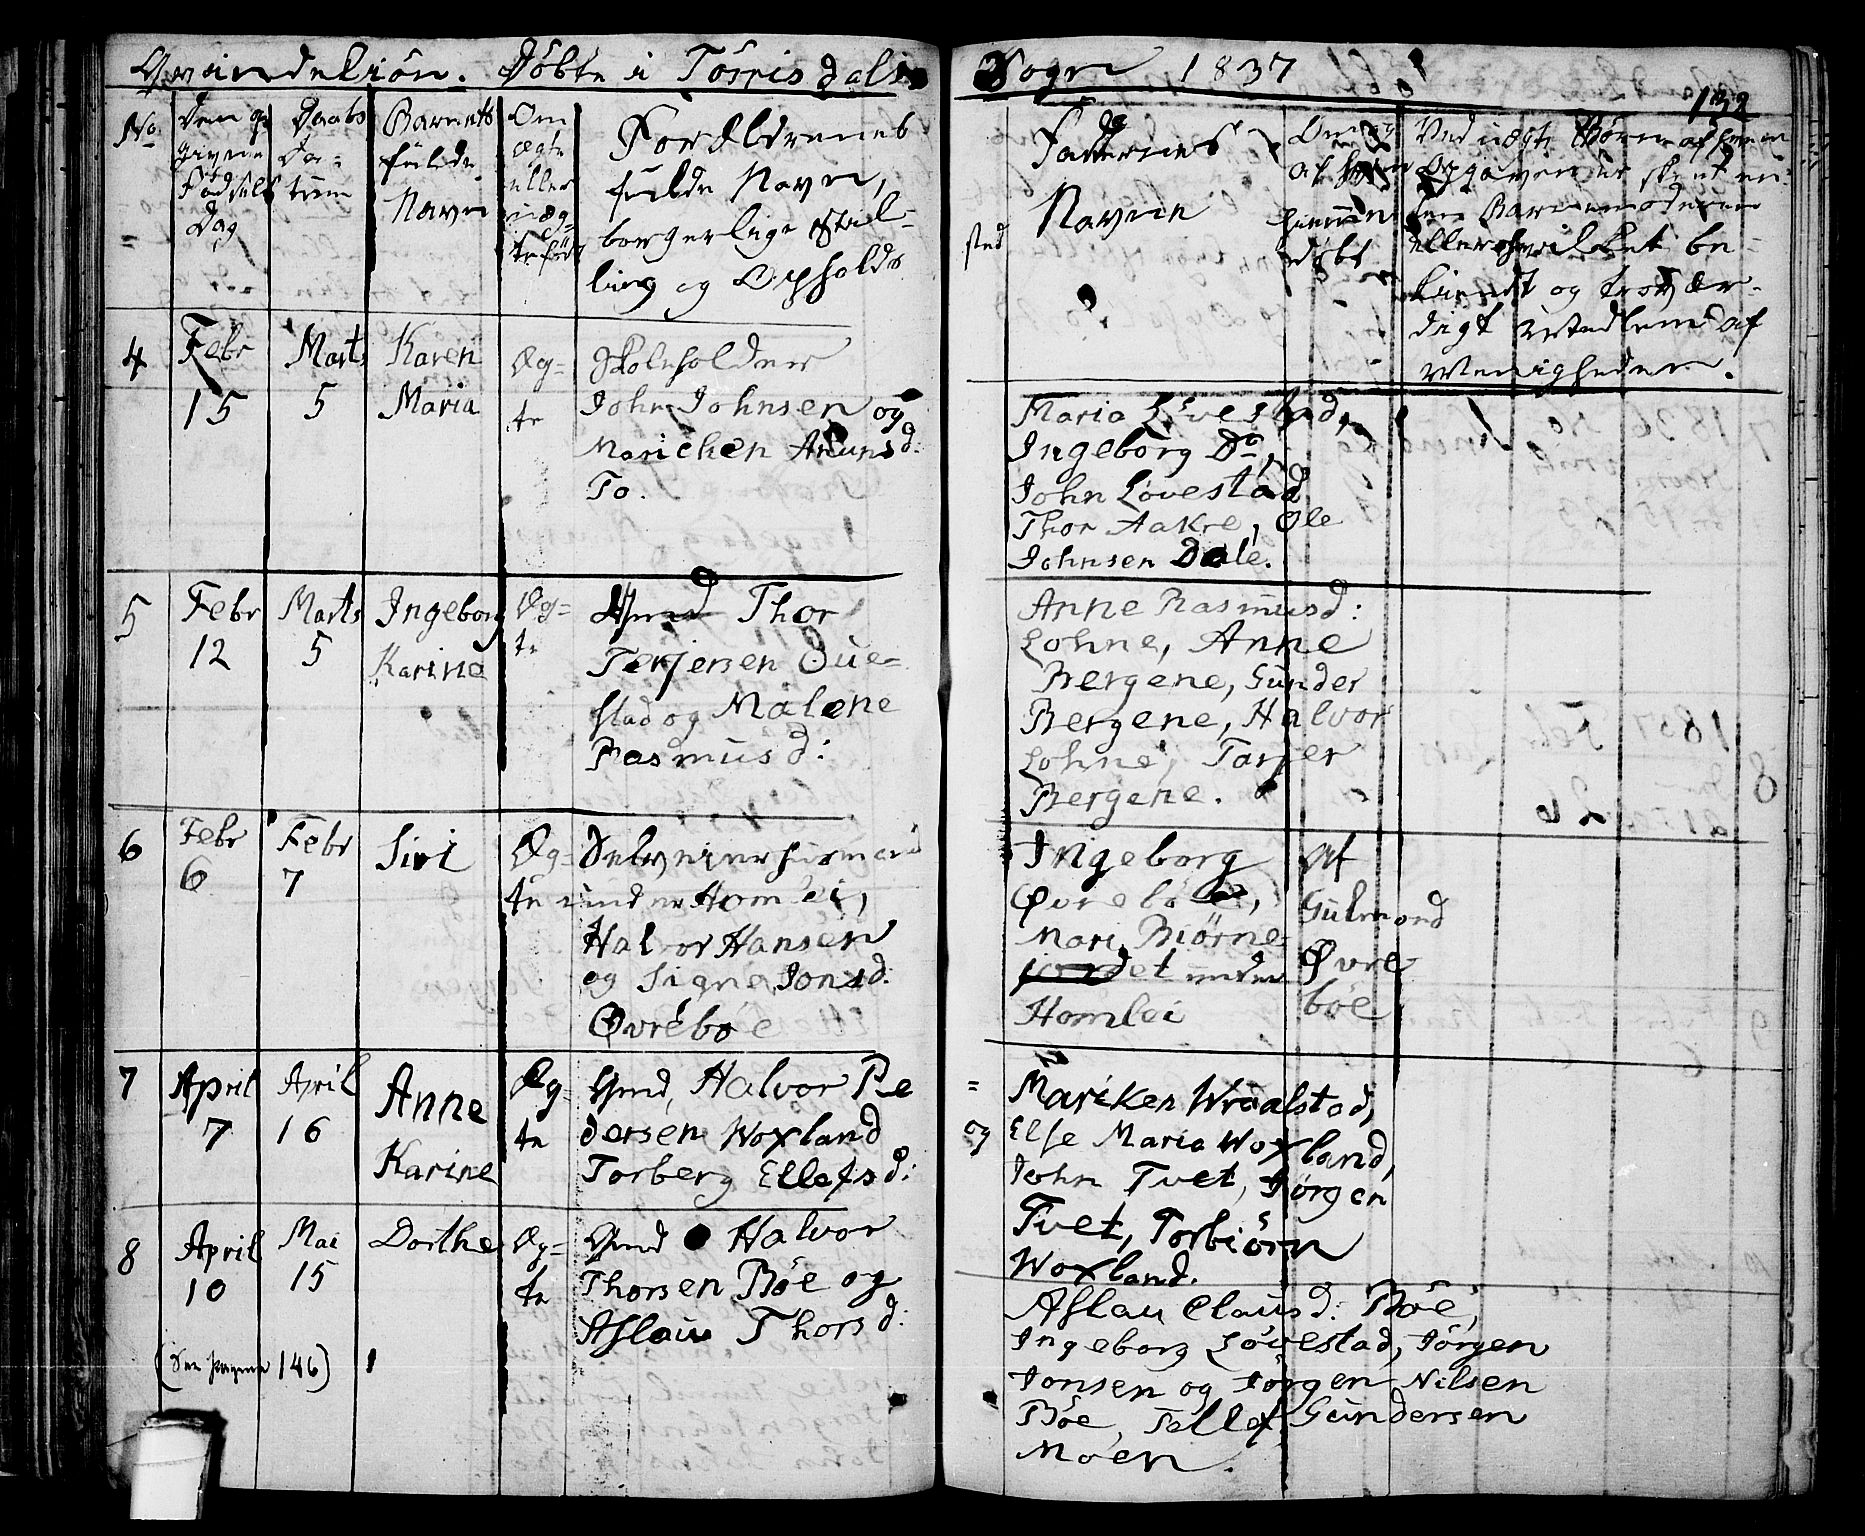 Qvindekiön. Döbte i Törrisdals Sogn 1837
132
No
Den an
givne
Födsels
Dag
Daabs
Da-
tum
Barnets
fulde
Navn
Om
ægte
eller
uæg-
te föd
Forældrenes
fulde Navn,
borgerlige Stil-
ling og Opholds
sted
Faddernes
Navne
Om og
af hvem
hiemme
döbt
Ved uægte Börn af hvem
Opgaven er skeet en
ten Barnemoderen
eller hvilket be-
kiendt og trovær-
digt Medlem af
Menigheden.
4
Febr
15
Marts
5
Karen
Maria
Æg-
te
Skoleholder
John Johnsen og
Marichen Anunsd:
To.
Maria Lövestad,
Ingeborg Do,
John Lövestad
Thor Aakre, Ole
Johnsen Dale.
5
Febr
12
Marts
5
Ingeborg
Karine
Æg-
te
Gmd Thor
Terjersen Oue-
stad og Malene
Rasmusd:
Anne Rasmusd:
Lohne, Anne
Bergene, Gunder
Bergene, Halvor
Lohne, Tarjer
Bergene.
6
Febr
6
Febr
7
Siri
Æg-
te
Selveierhusmand
under Homlei,
Halvor Hansen
og Signe Jonsd:
Övrebøe
Ingeborg
Øvreböe,
Mari Biörne-
jordet under
Homlei
Af
Gulmond
Øvre
böe
7
April
7
April
16
Anne
Karine
Æg-
te
Gmd, Halvor Pe
dersen Woxland
og
Torberg Ellefsd:
Mariken Wraalstad,
Else Maria Woxland,
John Tvet, Jörgen
Tvet, Torbiörn
Woxland.
8
April
10
Mai
15
Dorthe
Æg-
te
Gmd Halvor
Thorsen Böe og
Aslau Thorsd:
Aslau Clausd: Böe,
Ingeborg Lövestad, Jörgen
Jonsen og Jörgen Nilsen
Böe, Tellef Gundersen
Moen.
(See pagina 146)